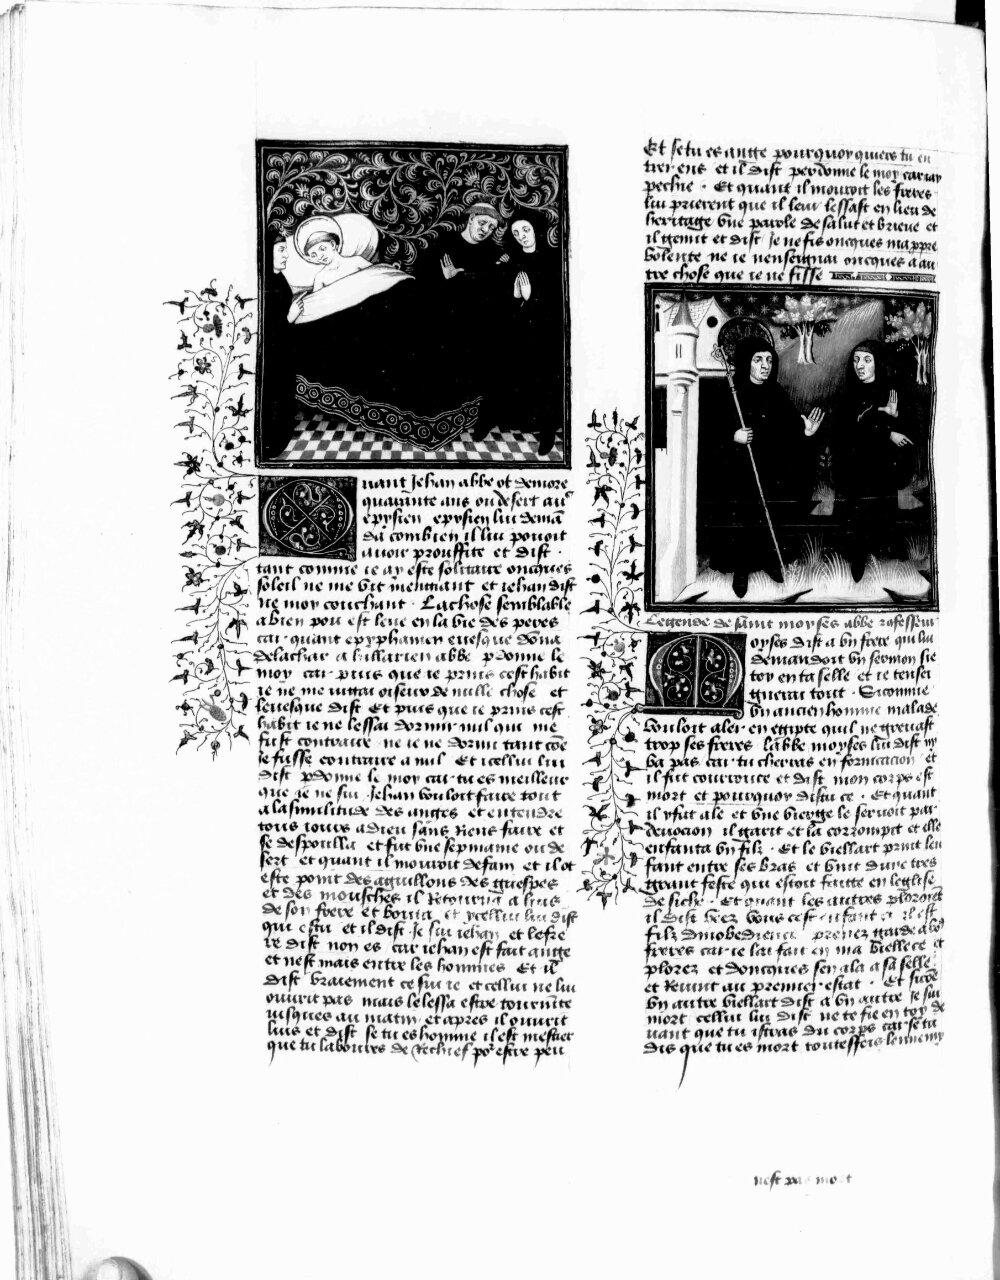 Quant Jehan abbe ot demore
quarante ans ou desert auec
episien episien lui deman
da combien il lui pouoit
auoir prouffite et dist .
tant comme ie ay este solitaire oncques
soleil ne me vit mengant et iehan dist
ne moy couchant . La chose semblable
a bien pou est leue en la vie des peres
car quant epyphanien euesque donna
de la char a hillarien abbe pdonne le
moy car puis que ie prins cest habit
ie ne me
leuesque dist Et puis que ie prins cest
habit ie ne lessai dormir nul qui me
fust contraire ne ie ne dormi tant coe
ie fusse contraire a nul Et icellui lui
dist pdonne le moy car tu es meilleur
que ie ne sui Jehan vouloit faire tout
a la similitude des anges et entendre
tous iours a dieu sans riens faire et
se despoulla et fut vne sepmaine ou de
sert et quant il mouroit de fain et il ot
este point des aguillons des guespes
et des mousches il retourna a luis
de son frere et bouta et ycellui lui dist
qui es tu et il dist Je sui iehan et le fre
re dist non es car iehan est fait ange
et nest mais entre les hommes Et il
dist vraiement ce sui ie et cellui ne lui
ouurit pas mais le lessa estre tourmente
iusques au matin et apres il ouurit
luis et dist se tu es homme il est mestier
que tu laboures de rechief por estre peu
Et se tu es ange pourquoy quiers tu en
trer ens et il dist perdonne le moy car iay
pechie . Et quant il mouroit les freres
lui prierent que il leur lessast en lieu de
heritage vne parole de salut et brieue et
il gemit et dist Je ne fis oncques ma ppre
volente ne ie nenseignai oncques a au
tre chose que ie ne fisse
Legende de saint moyses abbe
Moyses dist a vn frere qui lui
demandoit vn sermon sie
toy en ta selle et te ensei
gnerai tout . Si comme
vn ancien homme malade
vouloit aler en egipte quil ne greuast
trop ses freres labbe moyses lui dist ny
va pas car tu cherras en fornicacion et
il fut courrouce et dist mon corps est
mort et pourquoy dis tu ce . Et quant
il y fut ale et vne vierge le seruoit par
deuocion il garit et la corrompit et elle
enfanta vn filz . Et le viellart print len
fant entre ses bras et vint dune tres
grant feste qui estoit faitte en leglise
de siche . Et quant les autres ploroient
il dist veez vous cest enfant ci il est
filz dinobedience prenez garde a vo
freres car ie lai fait en ma viellece et
plorez et doncques sen ala a sa selle
et reuint au premier estat . Et sicoe
vn autre viellart dist a vn autre Je sui
mort cellui lui dist ne te fie en toy de
uant que tu istras du corps car se tu
dis que tu es mort touteffois lennemy
nest pas mort